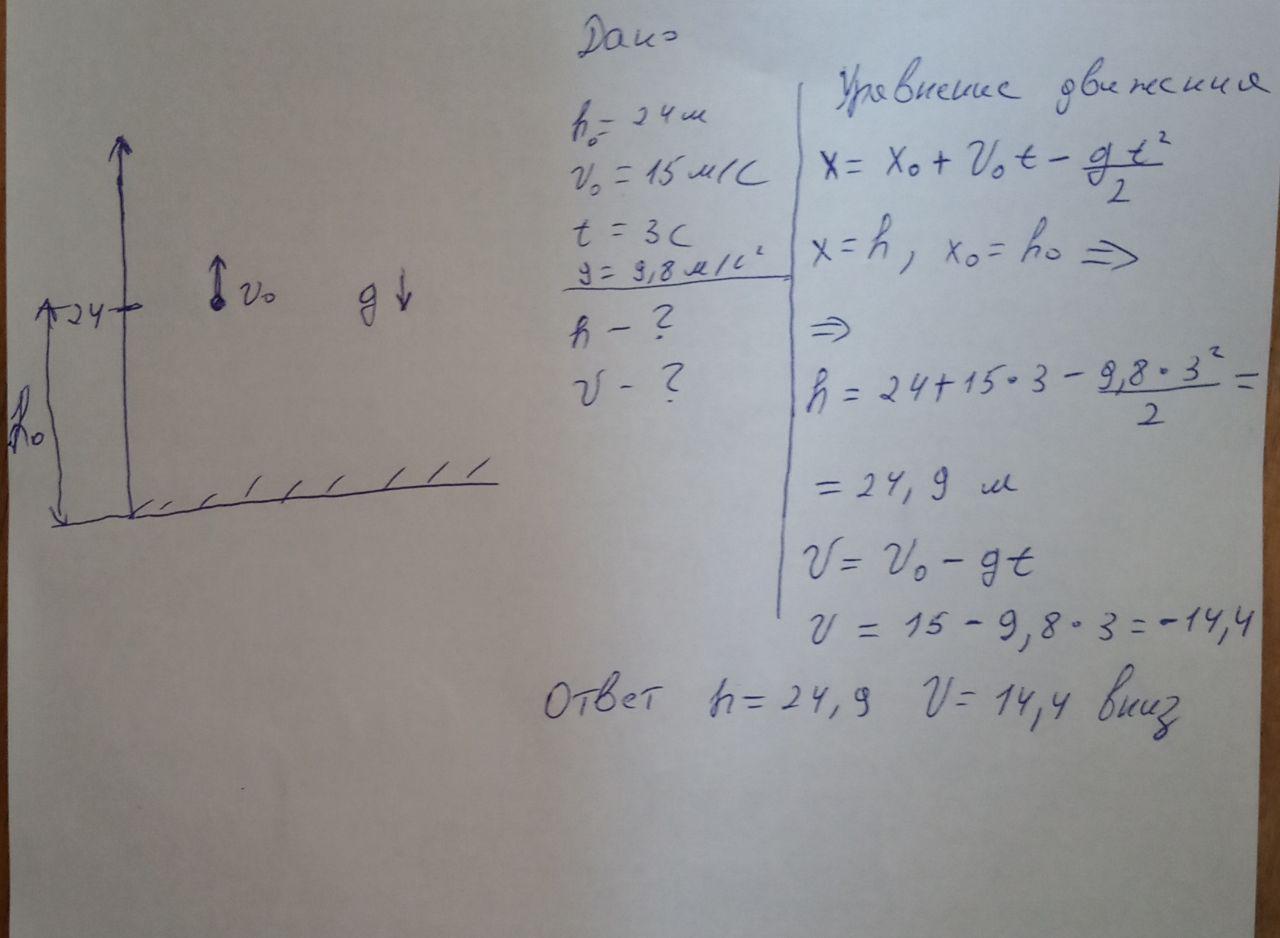 24
v₀
g
h₀
Дано
h₀ = 24 м
v₀ = 15 м/с
t = 3 с
g = 9,8 м/с²
h - ?
v - ?
Уравнение движения
x = x₀ + v₀t - gt²/2
x = h, x₀ = h₀ ⇒
⇒
h = 24 + 15 · 3 - 9,8 · 3²/2 =
= 24,9 м
v = v₀ - gt
v = 15 - 9,8 · 3 = -14,4
Ответ h = 24,9 v = 14,4 вниз